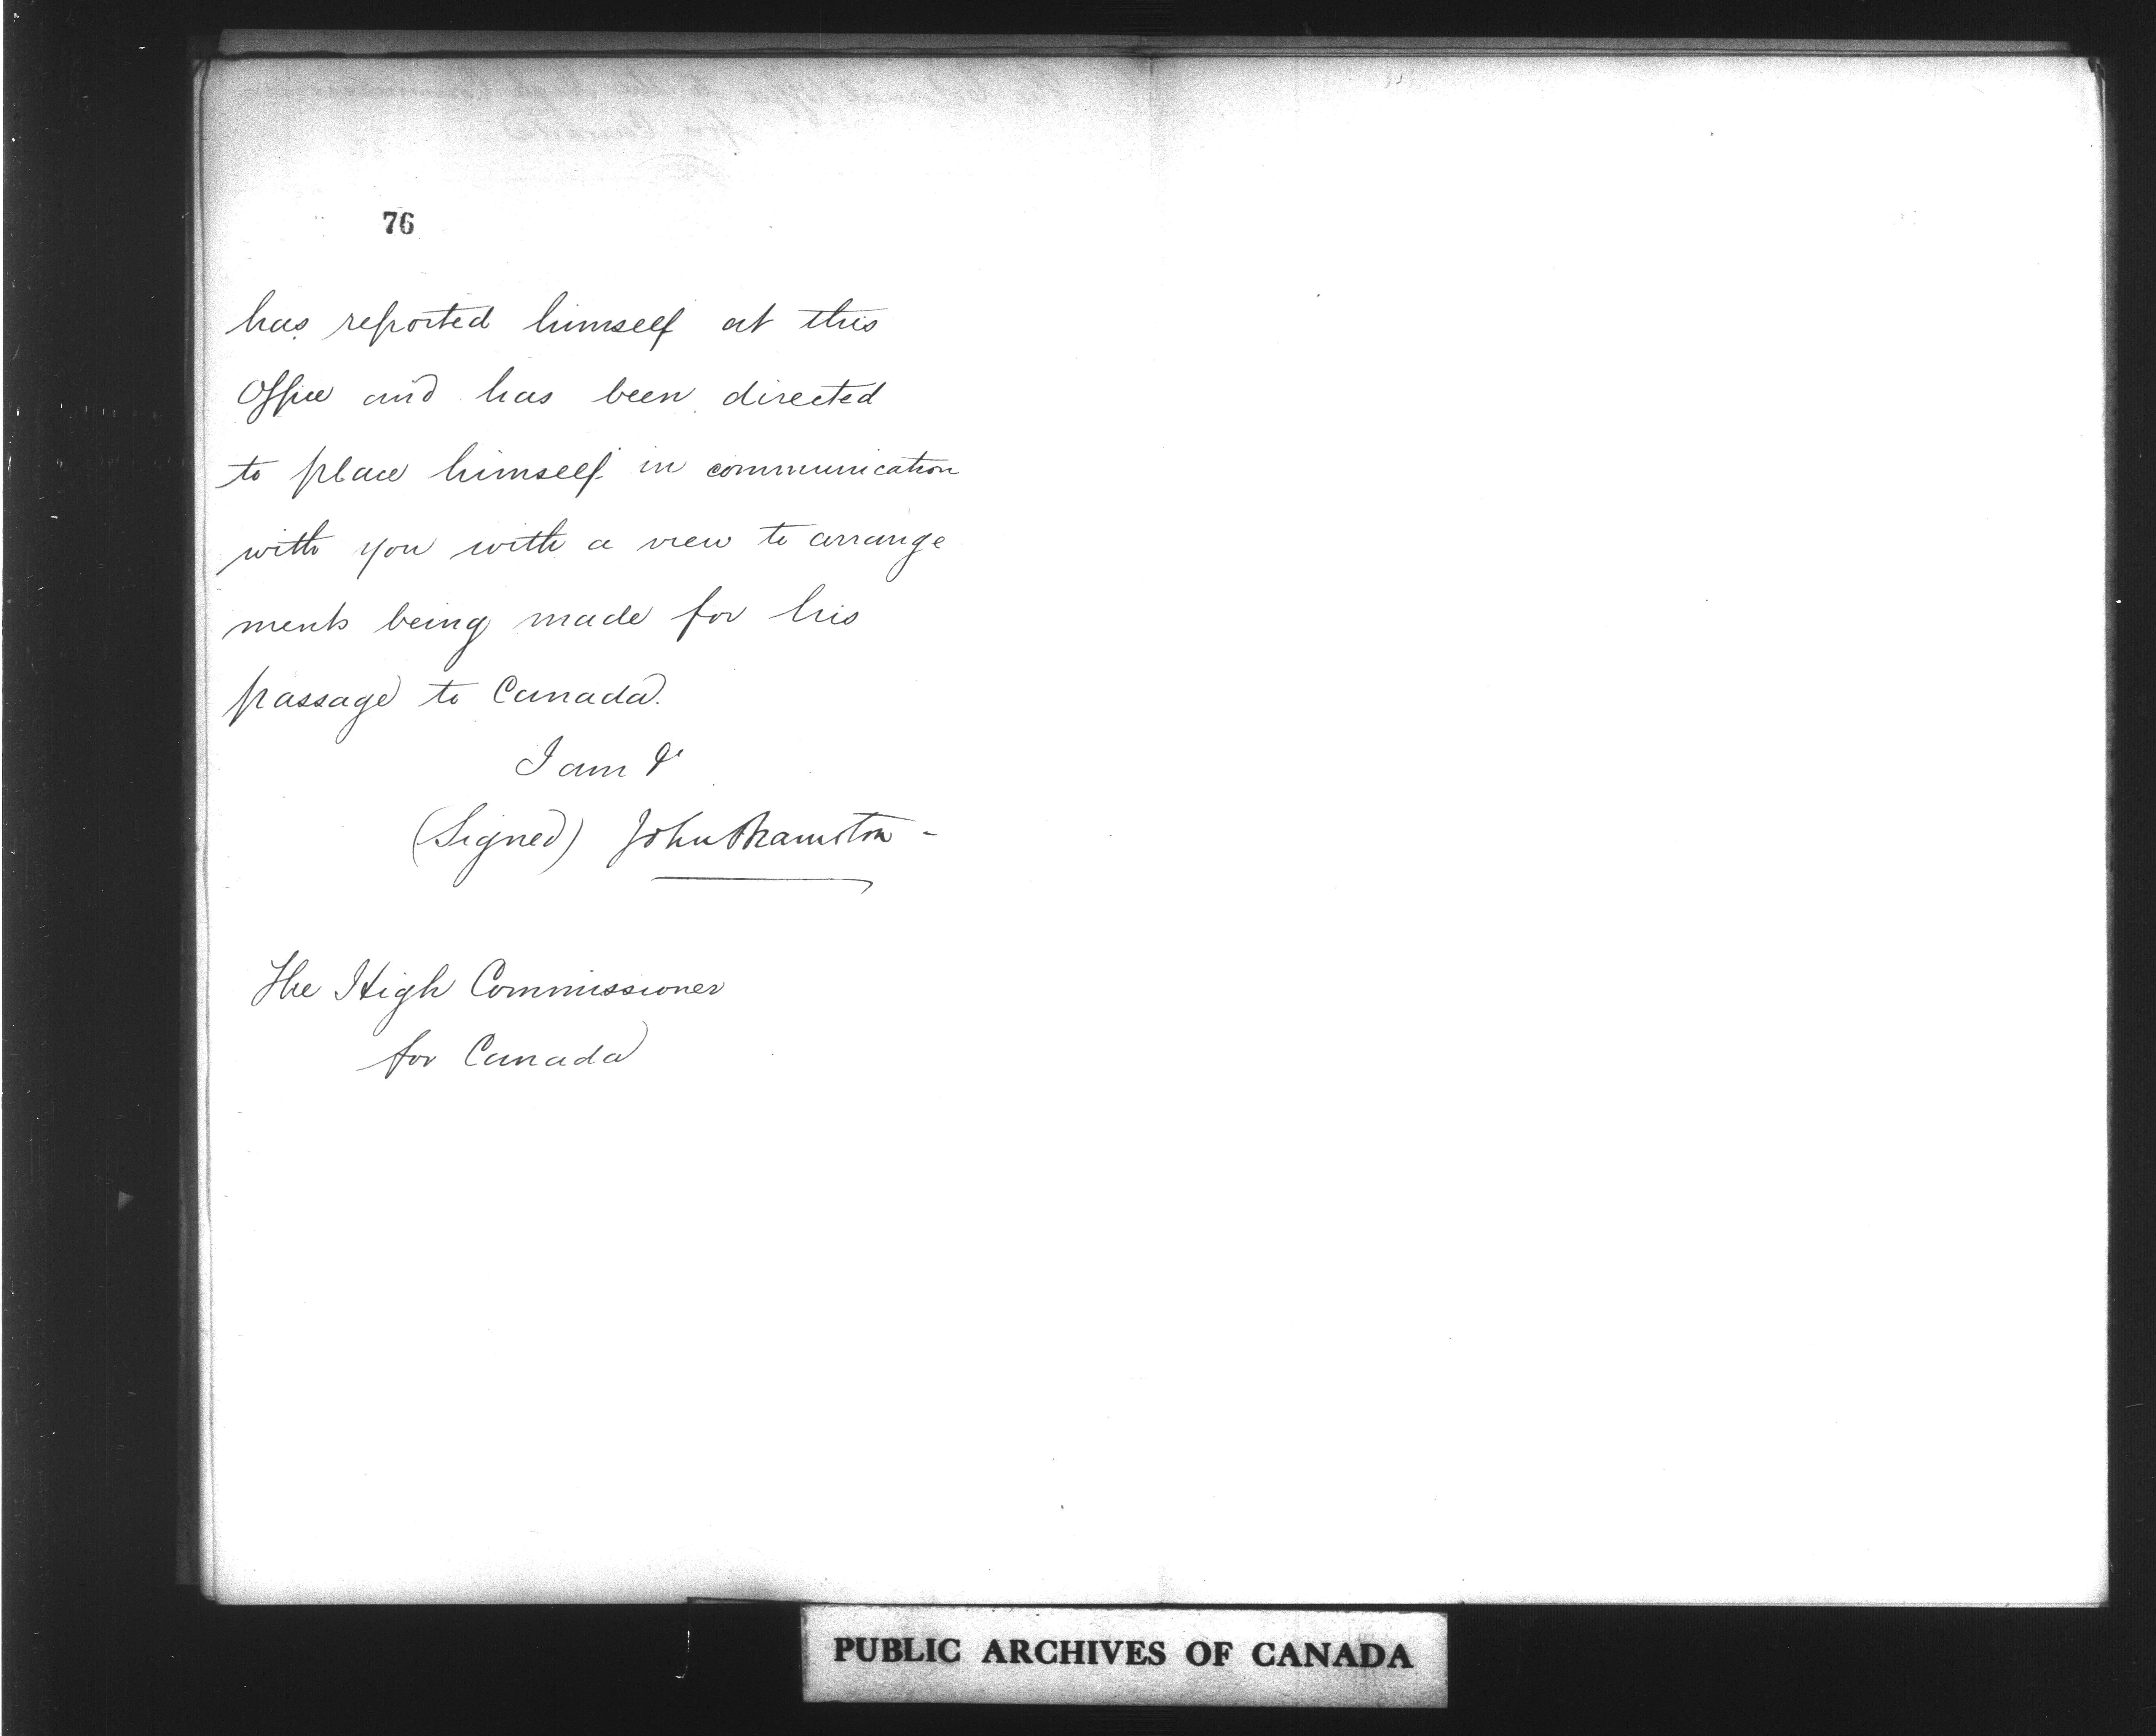 76
has reported himself at this
Office and has been directed
to place himself in communication
with you with a view to arrange
ments being made for his
passage to Canada.
I am &c
(Signed) John Bramston -
The High Commissioner
for Canada
PUBLIC ARCHIVES OF CANADA